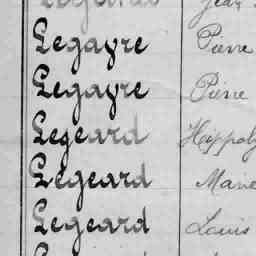 Legayre Pierre
Legayre Pierre
Legeard
Legeard Marie
Legeard Louis